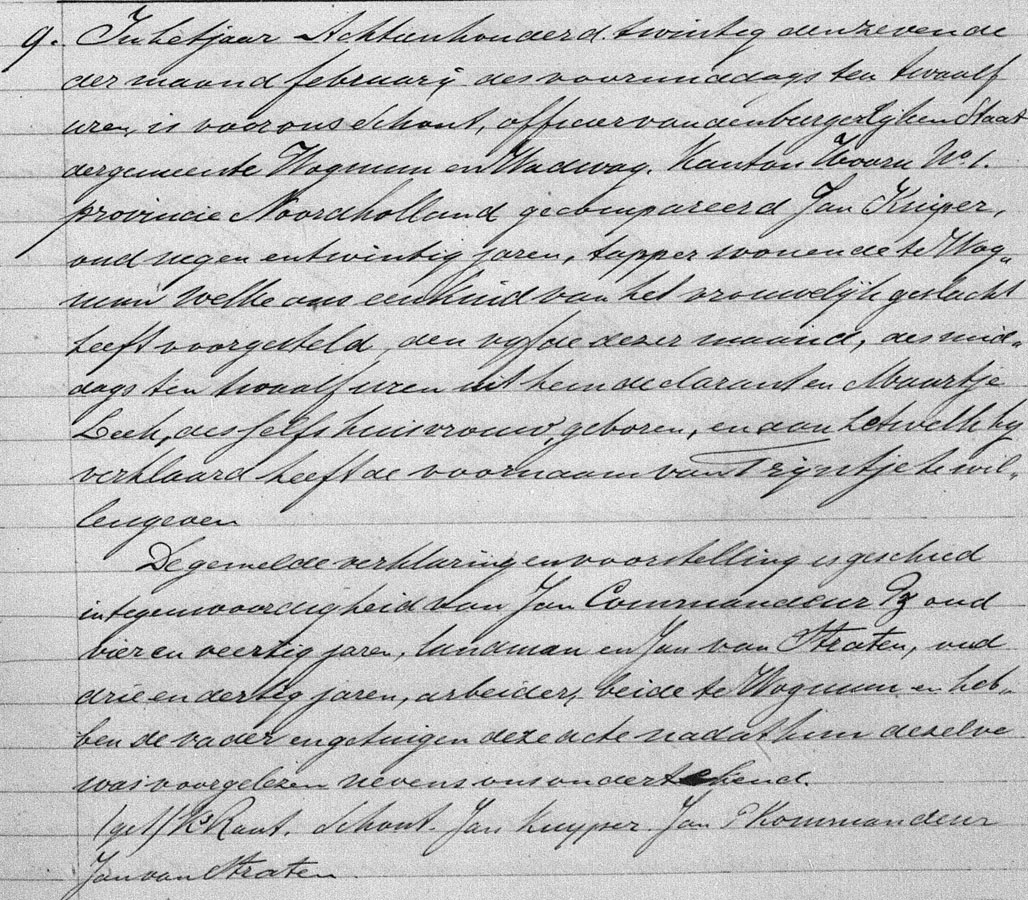 9. In het jaar Achtienhonderd twintig den zevende
der maand februarij des voormiddags ten twaalf
uren, is voor ons Schout, officier van den burgerlijken Staat
der gemeente Wognum en Wadway. Kanton Hoorn No 1.
provincie Noordholland gecompareerd Jan Kuiper,
oud negen en twintig jaren, tapper wonende te Wog„
num welke ons een kind van het vrouwelijk geslacht
heeft voorgesteld, den vyfde dezer maand, des mid„
dags ten twaalf uren uit hem declarant en Maartje
Leek, des selfs huisvrouw, geboren, en aan hetwelk hy
verklaard heeft de voornaam van Trijntje te wil„
len geven
De gemelde verklaring en voorstelling is geschied
in tegenwoordigheid van Jan Commandeur Pz oud
vier en veertig jaren, landman en Jan van Straten, oud
drie en dertig jaren, arbeider, beide te Wognum, en heb„
ben de vader en getuigen deze acte nadat hun dezelve
was voorgelezen nevens ons ondertekend.
(get) Ks Rant. Schout. Jan Kuyper. Jan P Kommandeur
Jan van Straten